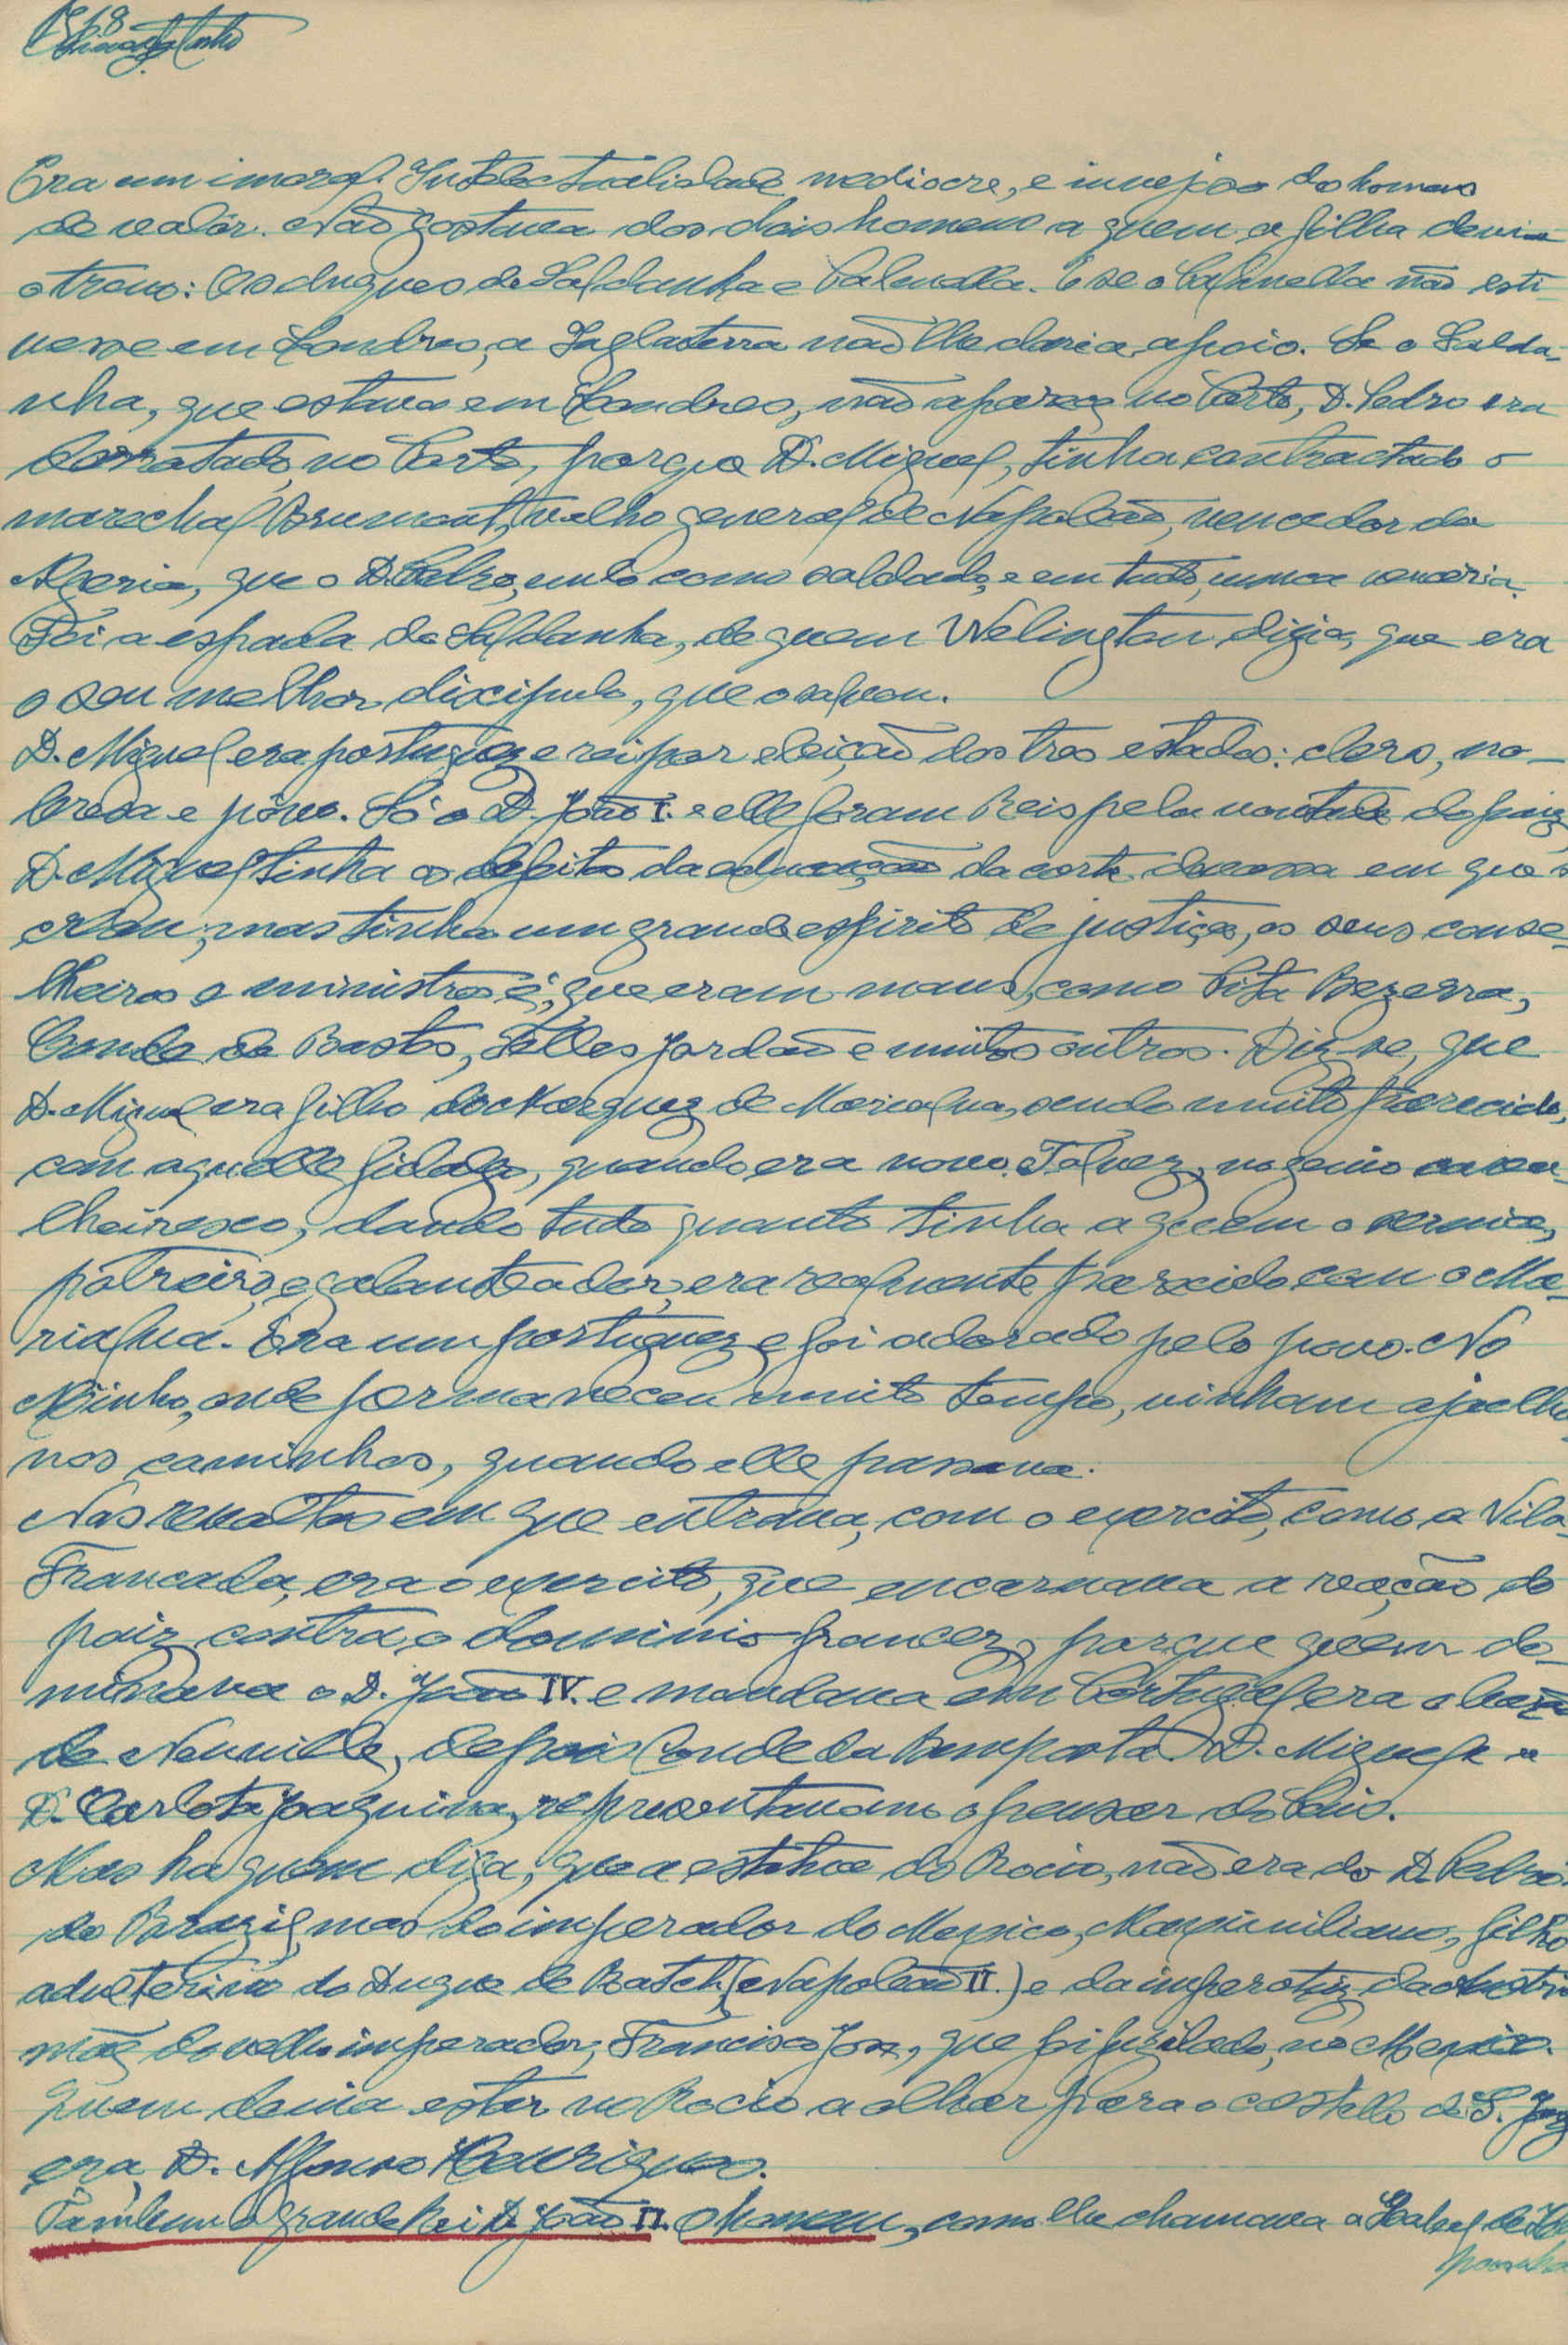 1568
Era um imoral. Intelectualidade mediocre, e invejoso do homens
de valôr. Não gostava dos dois homens a quem a filha devia
o trono: Os duques de Saldanha e Palmella. E se o Palmella não esti-
vesse em Londres, a Inglaterra não lhe daria apoio. Se o Salda-
nha, que estava em Londres, não aparece no Porto, D. Pedro era
derrotado, no Porto, porque D. Miguel, tinha contractado o
marechal Brumont, velho general de Napoleão, vencedor da
Algeria, que o D. Pedro, nulo como soldado, e em tudo, nunca venceria.
Foi a espada de Saldanha, de quem Welington dizia, que era
o seu melhor discipulo, que o salvou.
D. Miguel era portuguez e rei por eleição dos tres estados: clero, no-
breza e pôvo. Só o D. João I. e elle foram Reis pela vontade do paiz,
D. Miguel tinha os defeitos da educação da corte devassa em que o
criou, mas tinha um grande espirito de justiça, os seus conse-
lheiros e ministros é, que eram maus, como Pita Bezerra,
Conde de Bastos, Telles Jordão e muitos outros. Diz-se, que
D. Miguel era filho do Marquez de Marialva, sendo muito parecido,
com aquelle fidalgo, quando era novo. Talvez, no genio cava-
lheiresco, dando tudo quanto tinha a quem o servia,
potreiro, e galanteador, era realmente parecido com o Ma-
rialva. Era um portuguez e foi adorado pelo povo. No
Minho, onde permaneceu muito tempo, vinham ajoelhar
nos caminhos, quando elle passava.
Nas revoltas em que entrava, com o exercito, como a Vila-
Francada, era o exercito, que encarnava a reação do
paiz contra, o dominio francez, porque quem do-
minava o D. João IV. e mandava em Portugal era o barão
de Neuville, depois Conde da Bemposta. D. Miguel e a
D. Carlota Joaquina, representavam o pensar do Paiz.
Mas ha quem diga, que a estatua do Rocio, não era do D. Pedro
do Brazil, mas do imperador do Mexico, Maximiliano, filho
adulterino do Duque de Raatch (Napoleão II.) e da imperatriz da Austria
mãe do velho imperador, Francisco José, que foi fuzilado, no Mexico.
Quem devia estar no Rocio a olhar para o castello de S. Jorge
era D. Affonso Henriques.
Tambem o grande Rei D. João II. O homem, como lhe chamava a Isabel de